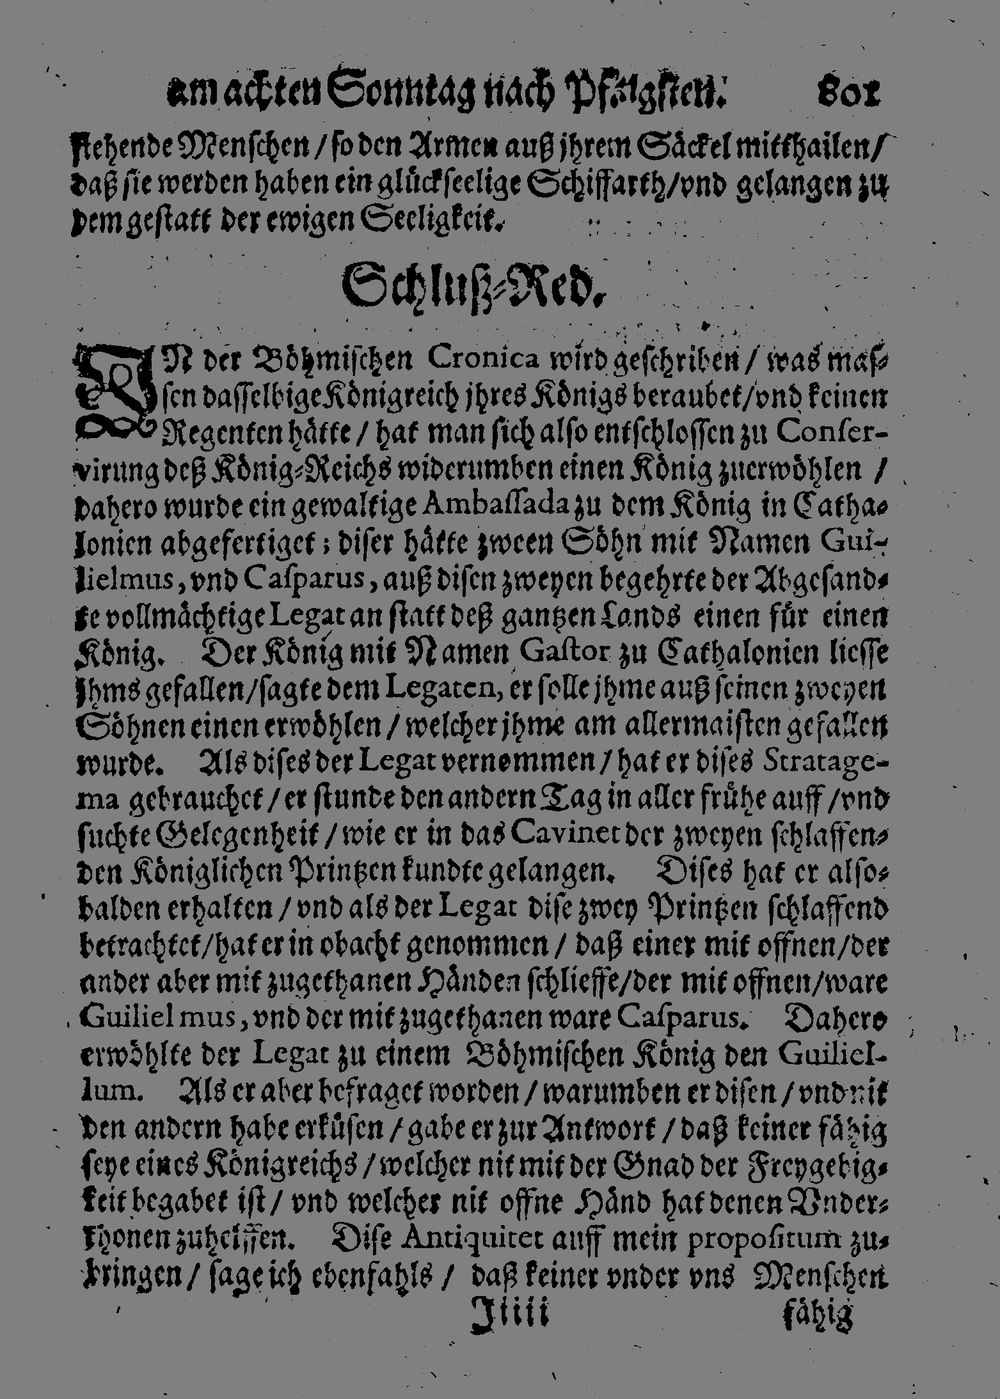 am achten Sonntag nach Pfingsten. 801
stehende Menschen / so den Armen auß jhrem Säckel mitthailen /
daß sie werden haben ein glückseelige Schiffarth / vnd gelangen zu
dem gestatt der ewigen Seeligkeit.
Schluß-Red.
IN der Böhmischen Cronica wird geschriben / was mas-
sen dasselbige Königreich jhres Königs beraubet / vnd keinen
Regenten hätte / hat man sich also entschlossen zu Conser-
virung deß König-Reichs widerumben einen König zuerwöhlen /
dahero wurde ein gewaltige Ambassada zu dem König in Catha-
lonien abgefertiget; diser hätte zween Söhn mit Namen Gui-
lielmus, vnd Casparus, auß disen zweyen begehrte der Abgesand-
te vollmächtige Legat an statt deß gantzen Lands einen für einen
König. Der König mit Namen Gastor zu Cathalonien liesse
jhms gefallen / sagte dem Legaten, er solle jhme auß seinen zweyen
Söhnen einen erwöhlen / welcher jhme am allermaisten gefallen
wurde. Als dises der Legat vernommen / hat er dises Stratage-
ma gebrauchet / er stunde den andern Tag in aller frühe auff / vnd
suchte Gelegenheit / wie er in das Cavinet der zweyen schlaffen-
den Königlichen Printzen kundte gelangen. Dises hat er also-
balden erhalten / vnd als der Legat dise zwey Printzen schlaffend
betrachtet / hat er in obacht genommen / daß einer mit offnen / der
ander aber mit zugethanen Händen schlieffe / der mit offnen / ware
Guilielmus, vnd der mit zugethanen ware Casparus. Dahero
erwöhlte der Legat zu einem Böhmischen König den Guiliel-
lum. Als er aber befraget worden / warumben er disen / vnd nit
den andern habe erküsen / gabe er zur Antwort / daß keiner fähig
seye eines Königreichs / welcher nit mit der Gnad der Freygebig-
keit begabet ist / vnd welcher nit offne Händ hat denen Vnder-
thonen zuhelffen. Dise Antiquitet auff mein propositum zu-
bringen / sage ich ebenfahls / daß keiner vnder vns Menschen
Jiiii fähig